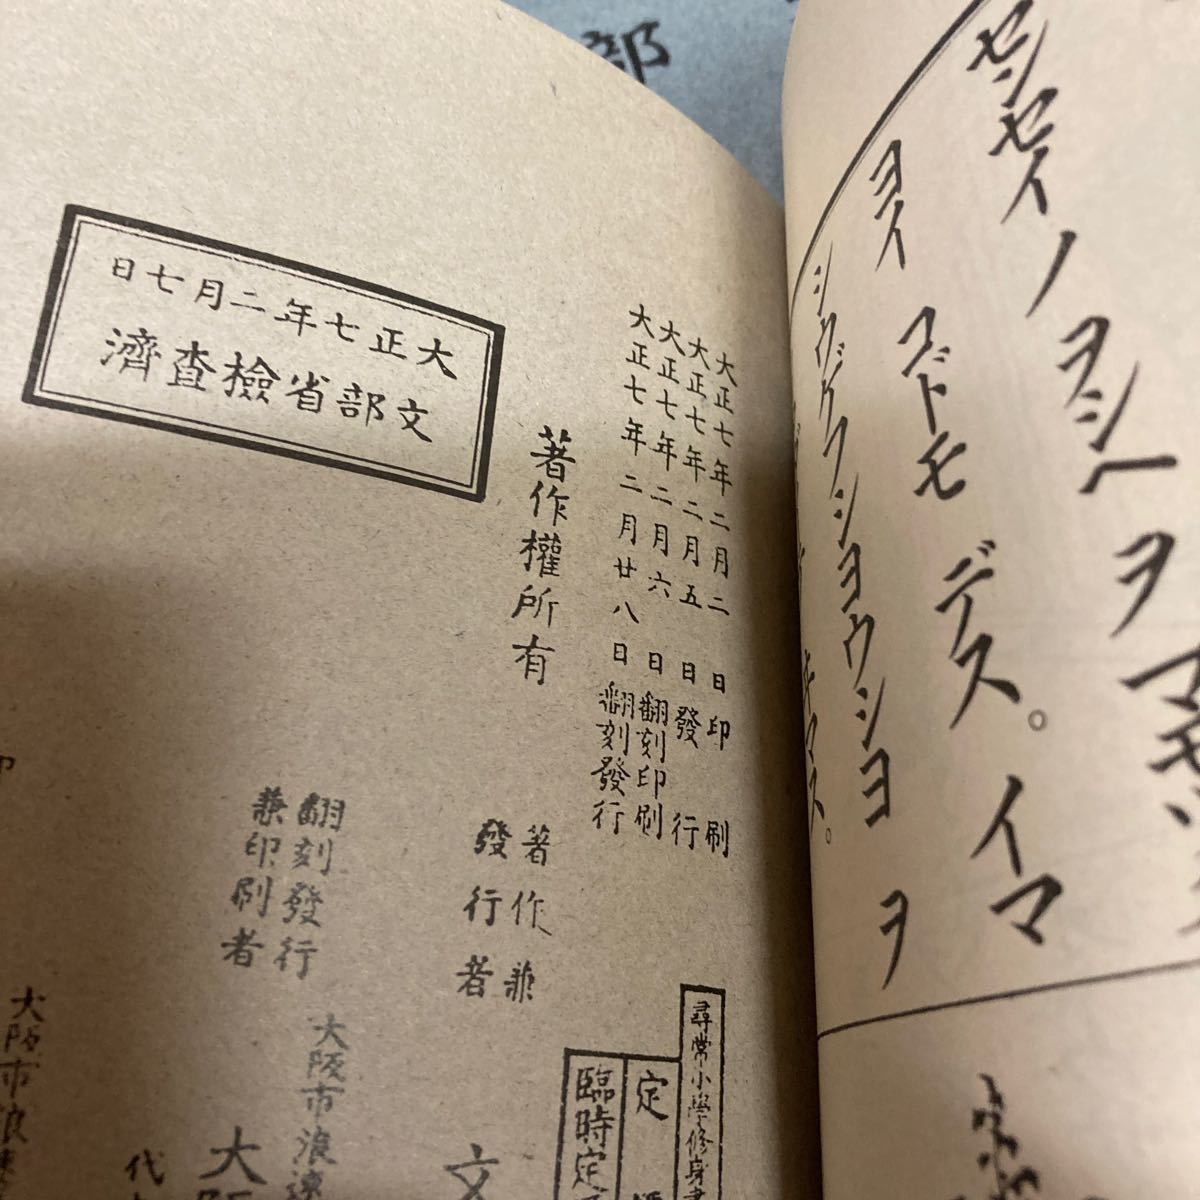 部
センセイノヲシヘヲマモ
ヨイコドモデス。イマ
シウゲフショウショヲ
キマス。
大正七年二月七日
文部省檢查濟
大正七年二月二日印刷
大正七年二月五日發行
大正七年二月六日翻刻印刷
大正七年二月廿八日翻刻發行
著作權所有
著作兼
發行者
文
翻刻發行
兼印刷者
大阪市浪速
大阪
代
大阪市浪速
印
尋常小學修身書
定
臨時定